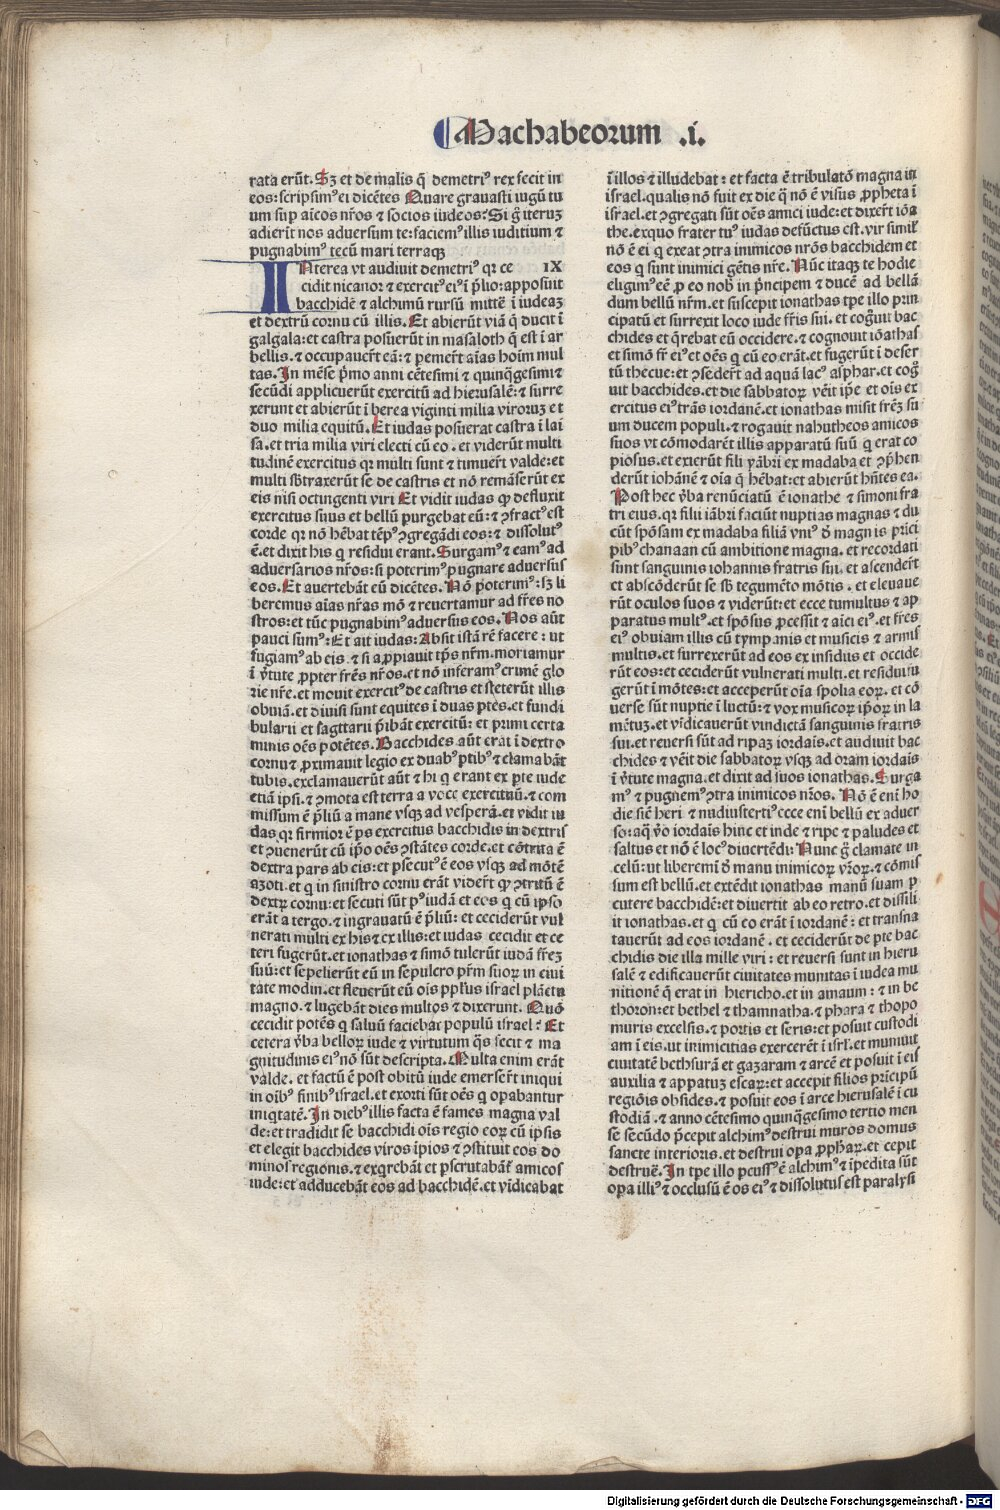 Machabeorum .i.
rata erūt. Sꝫ et de malis q̄ demetriꝰ rex fecit in
eos: scripsimꝰ ei dicētes Quare grauasti iugū tu
um sup aīcos nr̄os ⁊ socios iudeos? Si g̊ iteruꝫ
adierīt nos aduersum te: faciemꝰ illis iuditium ⁊
pugnabimꝰ tecū mari terraqꝫ
INterea vt audiuit demetriꝰ qꝛ ce IX
cidit nicanoꝛ ⁊ exercitꝰ eiꝰ ī p̄lio: apposuit
bacchidē ⁊ alchimū rursū mittē ī iudeaꝫ
et dextrū cornu cū illis. Et abierūt viā q̄ ducit ī
galgala: et castra posuerūt in masaloth q̄ est ī ar
bellis. ⁊ occupauer̄t eā: ⁊ pemer̄t aīas hoīm mul
tas. In mēse p̄mo anni cētesimi ⁊ quinq̄gesimi ⁊
secūdi applicuerūt exercitū ad hierusalē: ⁊ surre
xerunt et abierūt ī berea viginti milia viroruꝫ et
duo milia equitū. Et iudas posuerat castra ī lai
sa. et tria milia viri electi cū eo. et viderūt multi
tudinē exercitus qꝛ multi sunt ⁊ timuer̄t valde: et
multi sb̄traxerūt se de castris et nō remāserūt ex
eis nisi octingenti viri Et vidit iudas ꝙ defluxit
exercitus suus et bellū purgebat eū: ⁊ ꝯfractꝰ est
corde qꝛ nō hēbat tēpꝰ ꝯgregādi eos: ⁊ dissolutꝰ
ē. et dixit his q̄ residui erant. Surgamꝰ ⁊ eamꝰ ad
aduersarios nr̄os: si poterimꝰ pugnare aduersus
eos. Et auertebāt eū dicētes. Nō poterimꝰ: sꝫ li
beremus aīas nr̄as mō ⁊ reuertamur ad fr̄es no
stros: et tūc pugnabimꝰ aduersus eos. Nos aūt
pauci sumꝰ: Et ait iudas: Absit istā rē facere: ut
fugiamꝰ ab eis. ⁊ si aꝓpiauit tp̄s nr̄m. moriamur
ī v̄tute ꝓpter fr̄es nr̄os. et nō inferamꝰ crimē glo
rie nr̄e. et mouit exercitꝰ de castris et steterūt illis
obuiā. et diuisi sunt equites ī duas ꝑtes. et fundi
bularii et sagittarii p̄ibāt exercitū: et primi certa
minis oēs potētes. Bacchides aūt erat ī dextro
cornu ⁊ ꝓximauit legio ex duabꝰ ꝑtibꝰ ⁊ clamabāt
tubis. exclamauerūt aūt ⁊ hi q̄ erant ex ꝑte iude
etiā ipsi. ⁊ ꝯmota est terra a voce exercituū. ⁊ com
missum ē p̄liū a mane vsqꝫ ad vesperā. et vidit iu
das qꝛ firmior ē ps exercitus bacchidis in dextris
et ꝯuenerūt cū ip̄o oēs ꝯstātes corde. et cōtrita ē
dextra pars ab eis: et ꝑsecutꝰ ē eos vsqꝫ ad mōtē
azoti. et q̄ in sinistro cornu erāt vider̄t ꝙ ꝯtritū ē
dextꝝ cornu: et secuti sūt pꝰ iudā et eos q̄ cū ip̄so
erāt a tergo. ⁊ ingrauatū ē p̄liū: et ceciderūt vul
nerati multi ex his ⁊ ex illis: et iudas cecidit et ce
teri fugerūt. et ionathas ⁊ simō tulerūt iudā fr̄eꝫ
suū: et sepelierūt eū in sepulcro pr̄m suoꝝ in ciui
tate modin. et fleuerūt eū oīs ppl̄us israel plāctu
magno. ⁊ lugebāt dies multos ⁊ dixerunt. Quō
cecidit potēs q̄ saluū faciebat populū israel? Et
cetera v̄ba belloꝝ iude ⁊ virtutum q̄s fecit ⁊ ma
gnitudinis eiꝰ nō sūt descripta. Multa enim erāt
valde. et factū ē post obitū iude emerser̄t iniqui
in oībꝰ finibꝰ israel. et exorti sūt oēs q̄ opabantur
iniqtatē. In diebꝰ illis facta ē fames magna val
de: et tradidit se bacchidi oīs regio eoꝝ cū ip̄sis
et elegit bacchides viros īpios ⁊ ꝯstituit eos do
minos regionis. ⁊ exq̄rebāt et ꝑscrutabāt amicos
iude: et adducebāt eos ad bacchidē. et vīdicabat
ī illos ⁊ illudebat: et facta ē tribulatō magna in
israel. qualis nō fuit ex die q̄ nō ē visus ꝓpheta ī
israel. et ꝯgregati sūt oēs amici iude: et dixer̄t iōa
the. exquo frater tuꝰ iudas defūctus est. vir simil'
nō ē ei q̄ exeat ꝯtra inimicos nrōs bacchidem et
eos q̄ sunt inimici gētis nr̄e. Nūc itaqꝫ te hodie
eligimꝰ eē ꝓ eo nob̄ in p̄ncipem ⁊ ducē ad bellā
dum bellū nr̄m. et suscepit ionathas tꝑe illo prin
cipatū et surrexit loco iude fr̄is sui. et cog̊uit bac
chides et q̄rebat eū occidere. ⁊ cognouit iōathas
et simō fr̄ eiꝰ et oēs q̄ cū eo erāt. et fugerūt ī deser
tū thecue: et ꝯseder̄t ad aquā lacꝰ asphar. et cog̊
uit bacchides. et die sabbatoꝝ vēit ip̄e et oīs ex
ercitus eiꝰ trās iordanē. et ionathas misit fr̄eꝫ su
um ducem populi. ⁊ rogauit nabutheos amicos
suos vt cōmodarēt illis apparatū suū q̄ erat co
piosus. et exierūt fili ꝩābri ex madaba et ꝯp̄hen
derūt iohānē ⁊ oīa q̄ hēbat: et abierūt hn̄tes ea.
Post hec v̄ba renūciatū ē ionathe ⁊ simoni fra
tri eius. qꝛ filii iābri faciūt nuptias magnas ⁊ du
cūt spōsam ex madaba filiā vniꝰ d̄ magnis p̄nci
pibꝰ chanaan cū ambitione magna. et recordati
sunt sanguinis iohannis fratris sui. et ascender̄t
et abscōderūt se sb̄ tegumēto mōtis. et eleuaue
rūt oculos suos ⁊ viderūt: et ecce tumultus ⁊ ap
paratus multꝰ. et spōsus ꝓcessit ⁊ aīci eiꝰ. et fr̄es
eiꝰ obuiam illis cū tympanis et musicis ⁊ armis
multis. et surrexerūt ad eos ex insidiis et occide
rūt eos: et ceciderūt vulnerati multi. et residui fu
gerūt ī mōtes: et acceperūt oīa spolia eoꝝ. et cō
uerse sūt nuptie ī luctū: ⁊ vox musicoꝝ ip̄oꝝ in la
mētuꝫ. et vīdicauerūt vindictā sanguinis fratris
sui. et reuersi sūt ad ripaꝫ iordais. et audiuit bac
chides ⁊ vēit die sabbatoꝝ vsqꝫ ad oram iordais
ī v̄tute magna. et dixit ad suos ionathas. Surga
mꝰ ⁊ pugnemꝰ ꝯtra inimicos nr̄os. Nō ē enī ho
die sic̄ heri ⁊ nudiustertiꝰ ecce enī bellū ex aduer
so: aq̄ v̄o iordais hinc et inde ⁊ ripe ⁊ paludes et
saltus et nō ē locꝰ diuertēdi: Nunc g̊ clamate in
celū: ut liberemī d̄ manu inimicoꝝ vr̄oꝝ. ⁊ cōmis
sum est bellū. et extēdit ionathas manū suam ꝑ
cutere bacchidē: et diuertit ab eo retro. et dissili
it ionathas. et q̄ cū eo erāt ī iordanē: et transna
tauerūt ad eos iordanē. et ceciderūt de ꝑte bac
chidis die illa mille viri: et reuersi sunt in hieru
salē ⁊ edificauerūt ciuitates munitas ī iudea mu
nitionē q̄ erat in hiericho. et in amaum: ⁊ in be
thoron: et bethel ⁊ thamnatha. ⁊ phara ⁊ thopo
muris excelsis. ⁊ portis et seris: et posuit custodi
am ī eis. ut inimicitias exercerēt ī isrl̄. et muniuit
ciuitatē bethsurā et gazaram ⁊ arcē et posuit ī eis
auxilia ⁊ appatuꝫ escaꝝ: et accepit filios prīcipū
regiōis obsides. ⁊ posuit eos ī arce hierusalē ī cu
stodiā. ⁊ anno cētesimo quinq̄gesimo tertio men
se secūdo p̄cepit alchimꝰ destrui muros domus
sancte interioris. et destrui opa ꝓphaꝝ. et cepit
destruē. In tꝑe illo ꝑcussꝰ ē alchimꝰ ⁊ īpedita sūt
opa illiꝰ ⁊ occlusū ē os eiꝰ ⁊ dissolutus est paralysi
Digitalisierung gefördert durch die Deutsche Forschungsgemeinschaft - DFG